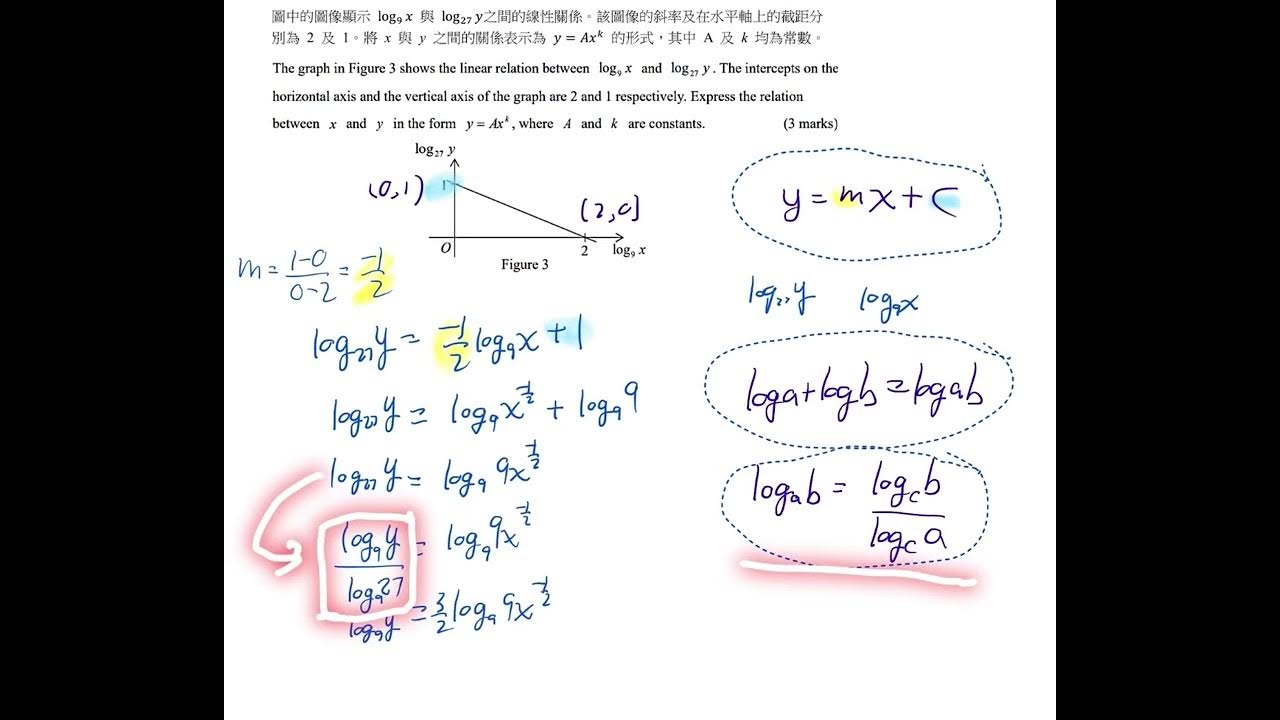 圖中的圖像顯示 log₉ x 與 log₂₇ y之間的線性關係。該圖像的斜率及在水平軸上的截距分
別為 2 及 1。將 x 與 y 之間的關係表示為 y = Axᵏ 的形式，其中 A 及 k 均為常數。
The graph in Figure 3 shows the linear relation between log₉ x and log₂₇ y. The intercepts on the
horizontal axis and the vertical axis of the graph are 2 and 1 respectively. Express the relation
between x and y in the form y = Axᵏ, where A and k are constants. (3 marks)
log₂₇ y
(0,1) 1
(2,0]
O 2 log₉ x
Figure 3
m = (1-0)/(0-2) = -1/2
log₂₇ y = -1/2 log₉ x + 1
log₂₇ y = log₉ x^(-1/2) + log₉ 9
log₂₇ y = log₉ 9x^(-1/2)
log₉ y / log₉ 27 = log₉ 9x^(-1/2)
log₉ y = 3/2 log₉ 9x^(-1/2)
y = mx + c
log₂₇ y log₉ x
log a + log b = log ab
logₐ b = log_c b / log_c a